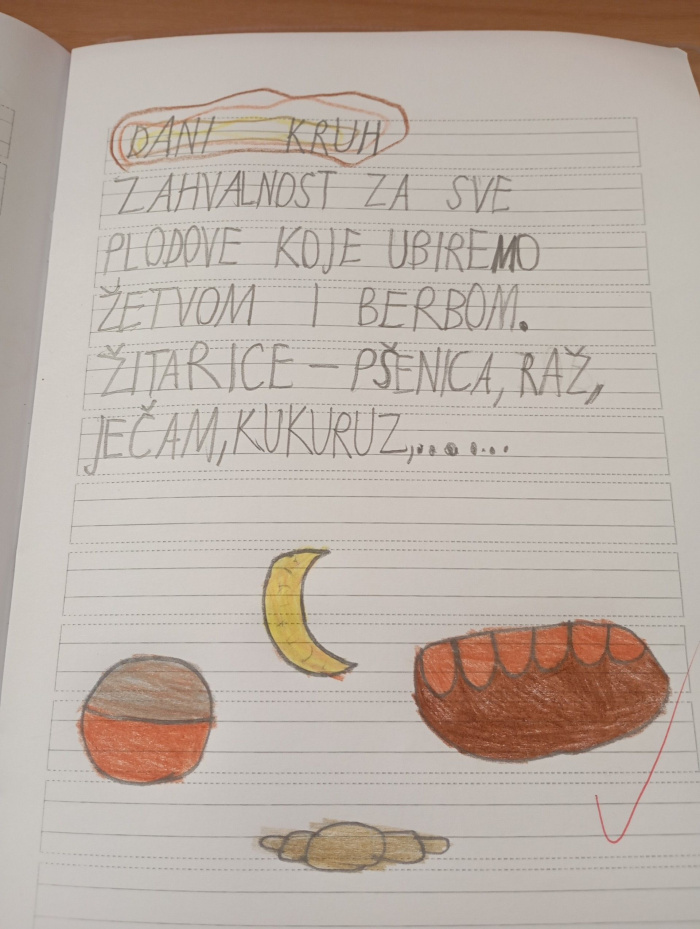 DANI KRUH
ZAHVALNOST ZA SVE
PLODOVE KOJE UBIREMO
ŽETVOM I BERBOM.
ŽITARICE – PŠENICA, RAŽ,
JEČAM, KUKURUZ,.......